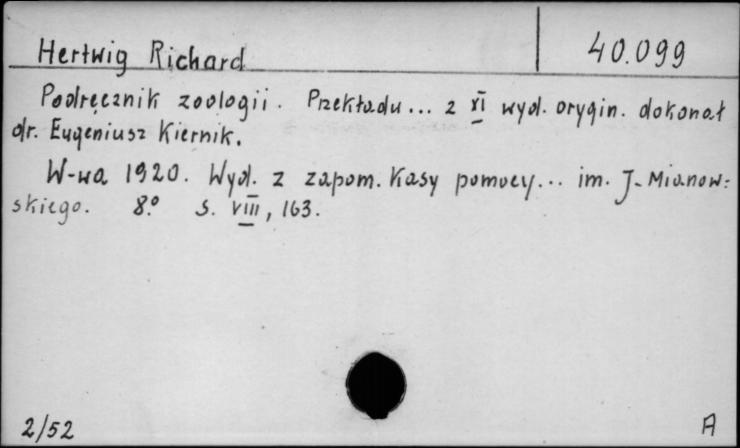 Hertwig Richard 40.099
Podręcznik zoologii. Przekładu... z XI wyd. orygin. dokonał
dr. Eugeniusz Kiernik.
W-wa 1920. Wyd. z zapom. Kasy pomocy... im. J. Mianow-
skiego. 8.° S. VIII, 163.
2/52 A